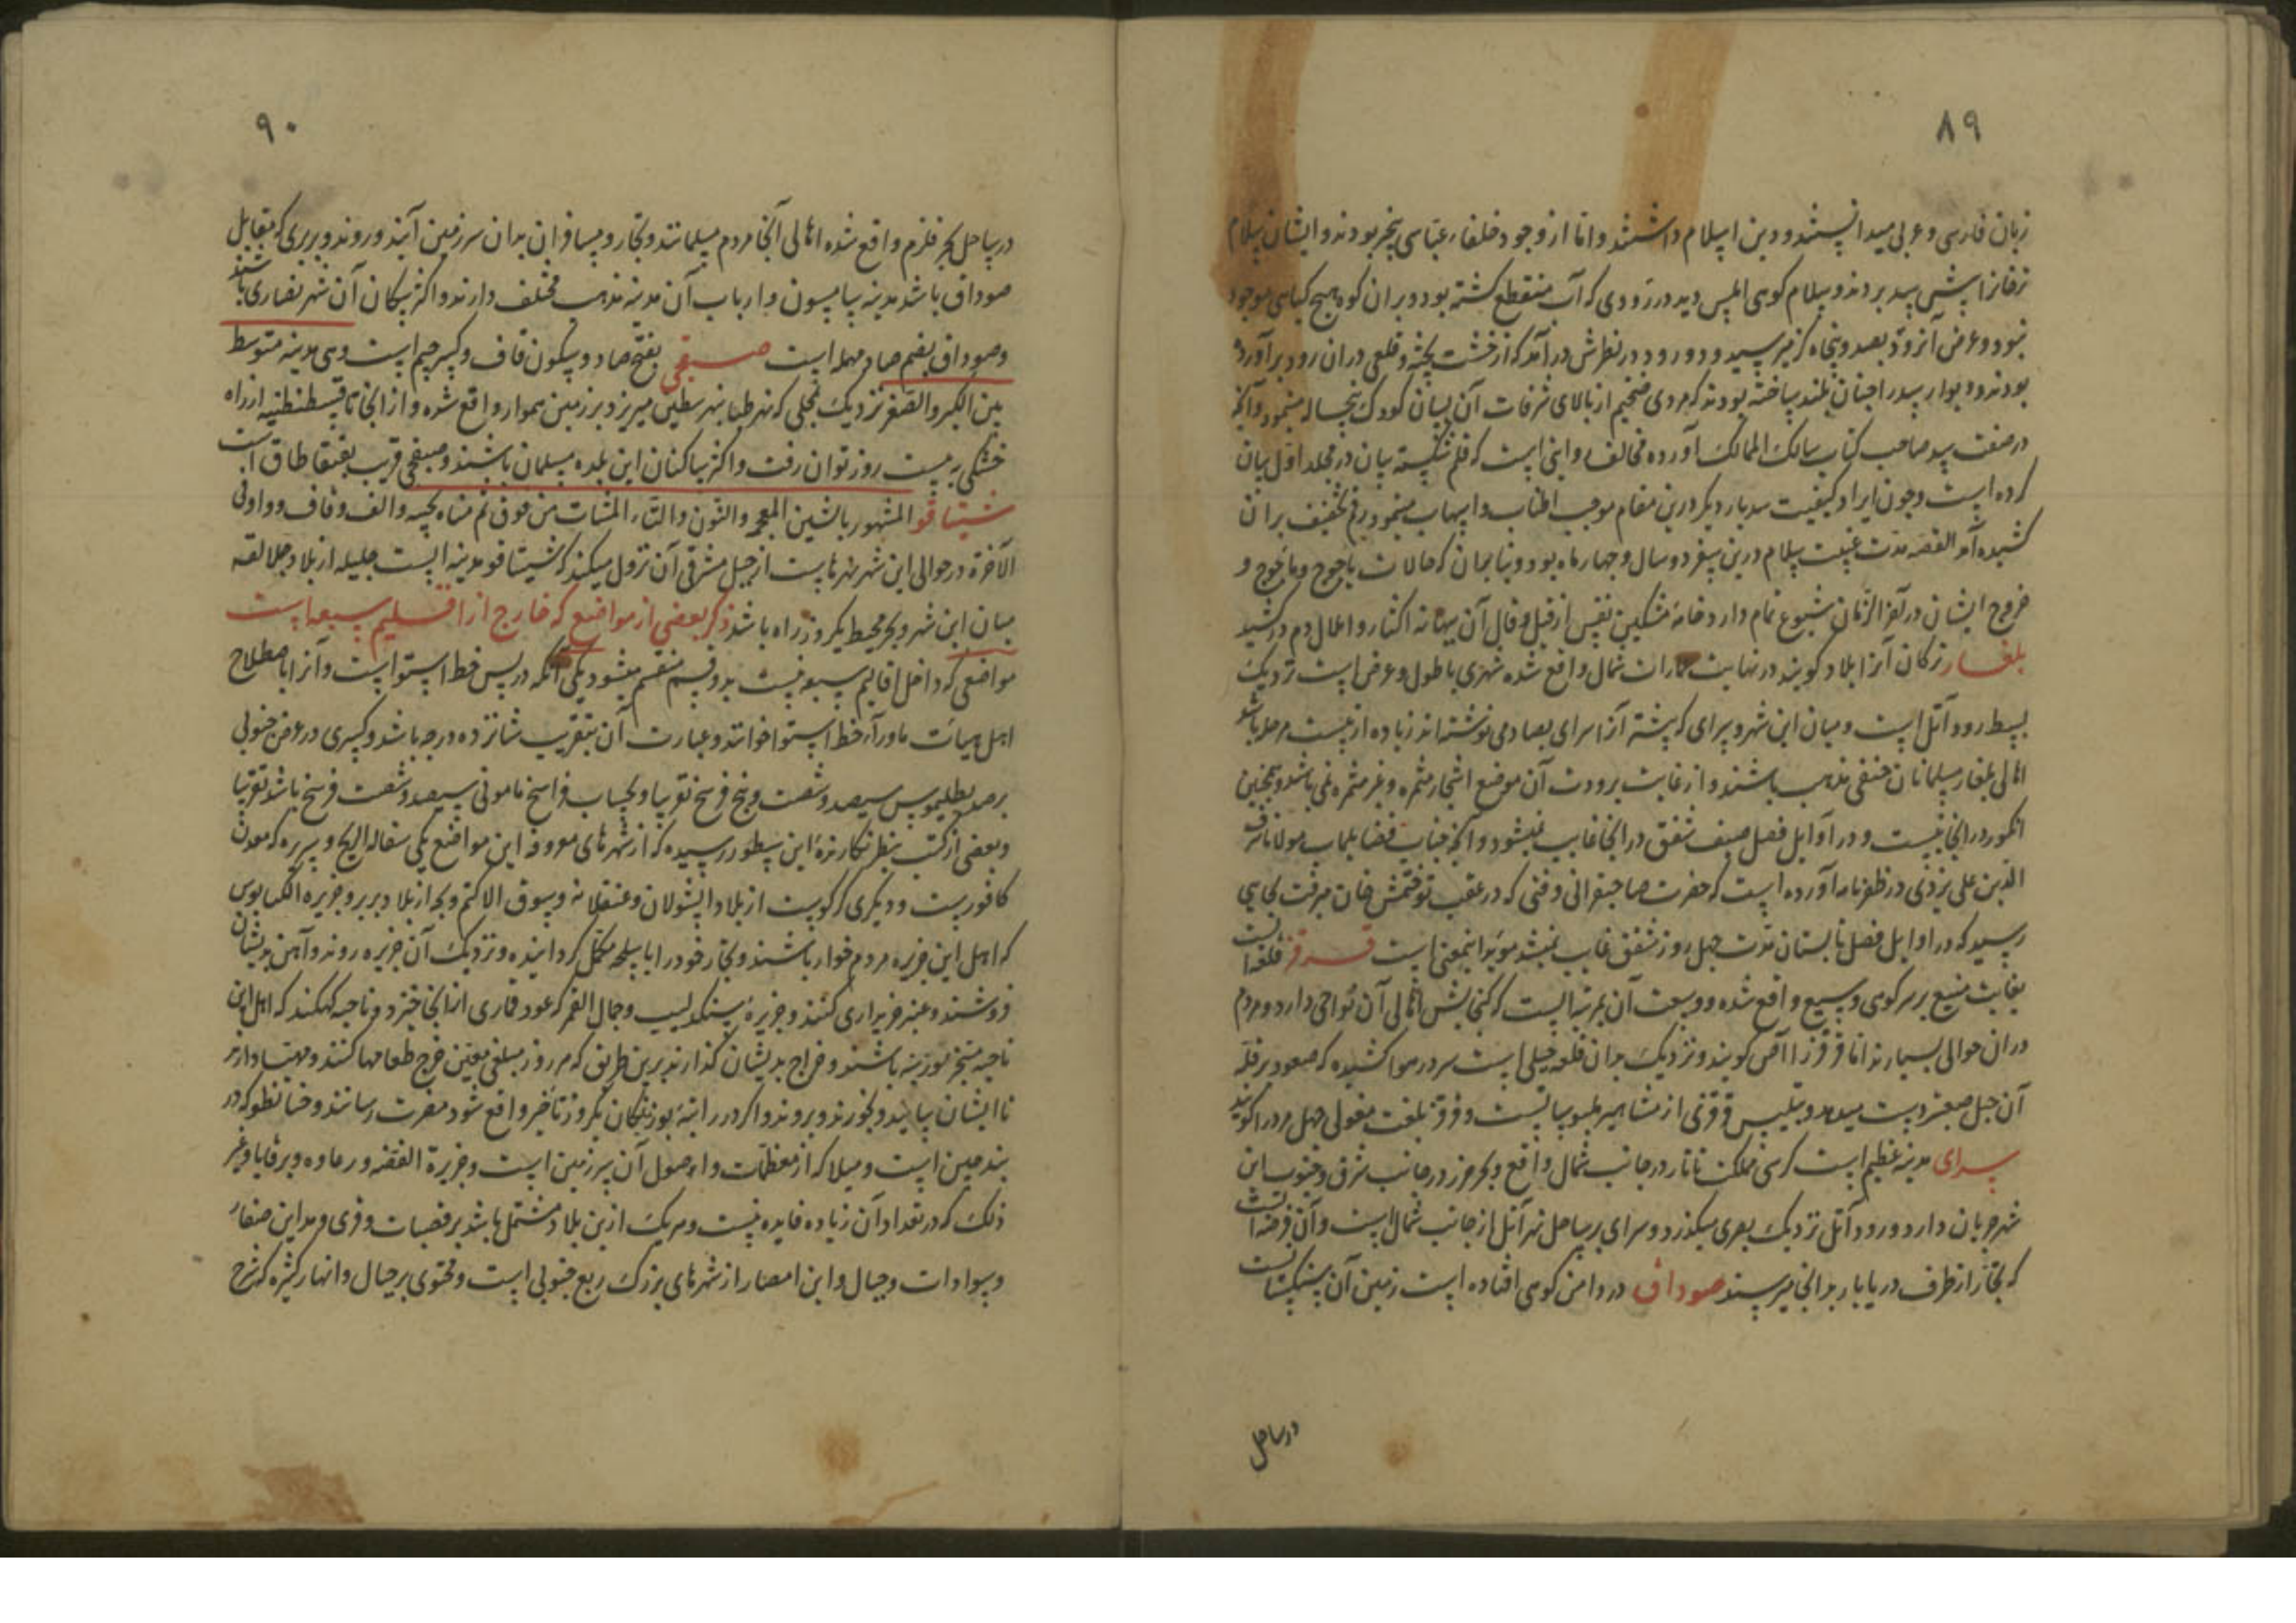 ۸۹
زبان فارسی و عربی میدانستند و دین اسلام داشتند و اما از وجود خلفاء عباسی بیخبر بودند و ایشان سلام
ترجمانرا پیش سد بردند و سلام کوهی املس دید در رودی که آب منقطع گشته بود و بران کوه هیچ گیاهی موجود
نبود و عرض آنرود بصد و پنجاه گز میرسید و دو رود در نظرش درآمد که از خشت پخته و قلعی در ان رود برآورده
بودند و دیوار سد را چنان بلند ساخته بودند که مردی ضخیم از بالای شرفات آن بسان کودک پنجساله مینمود و آنچه
در صفت سد صاحب کتاب مسالک الممالک آورده مخالف و اینی است که قلم شکسته بیان در مجلد اول بیان
کرده است و چون ایراد کیفیت سد بار دیگر درین مقام موجب اطناب و اسهاب مینمود رقم تخفیف بران
کشیده آمد القصه مدت غیبت سلام درین سفر دو سال و چهار ماه بود و بنا بران که حالات یاجوج و ماجوج و
خروج ایشان در آخر الزمان شیوع تمام دارد خامه مشکین نفس از قیل و قال آن بهانه اکثار و املال دم درکشید
بلغار ترکان آنرا بلاد گویند در نهایت عمارات شمال واقع شده شهری با طول و عرض است نزدیک
بسط رود آتل است و میان این شهر و سرای که پیشتر آنرا سرای بصاد می نوشته اند زیاده از بیست مرحله باشد
اهالی بلغار مسلمانان حنفی مذهب باشند و از غایت برودت آن موضع اشجار مثمره و غیر مثمره نمی باشد و همچنین
انگور در انجا نیست و در اوایل فصل صیف شفق در انجا غایب نمیشود و آنچه جناب فضایلماب مولانا شرف
الدین علی یزدی در ظفرنامه آورده است که حضرت صاحبقرانی وقتی که در عقب توقتمش خان میرفت بجایی
رسید که در اوایل فصل تابستان مدت چهل روز شفق غایب نمیشد موید اینمعنی است قرقر قلعه ایست
بغایت منیع بر سر کوهی وسیع واقع شده و وسعت آن بمرتبه ایست که گنجایش اهالی آن نواحی دارد و مردم
دران حوالی بسیارند اما قرقر را آص گویند و نزدیک بدان قلعه جبلی است سر در هوا کشیده که صعود بر قله
آن جبل صعبتر و قرقر بلغت مغولی چهل مرد را گویند
سرای مدینه عظیم است کرسی مملکت تاتار در جانب شمال واقع و بحر خزر در جانب شرق و جنوب این
شهر جریان دارد و رود آتل نزدیک بسری میگذرد و سرای بر ساحل نهر آتل از جانب شمال است و آن فرضه ایست
که تجار از طرف دریا بار بدانجا میرسند صوداق در دامن کوهی افتاده است زمین آن سنگستانیست
در ساحل
۹۰
در ساحل بحر قلزم واقع شده اهالی آنجا مردم مسلمانند و تجار و مسافران بدان سرزمین آیند و روند و بربری که مقابل
صوداق باشد مدینه سامسون و ارباب آن مدینه مذهب مختلف دارند و اکثر سکان آن شهر نصاری باشند
و صوداق بضم صاد مهمله است صقجی بفتح صاد و سکون قاف و کسر جیم است وهی مدینه متوسط
بین الکبر والصغر نزدیک بمحلی که نهر طنا بنهر نیطس میریزد بر زمین هموار واقع شده و از انجا تا قسطنطنیه از راه
خشکی به بیست روز توان رفت و اکثر ساکنان این بلده مسلمان باشند و صقجی قریب بقنقاطاق است
شنتیاقو المشهور بالشین المعجمه والنون والتاء المثنات من فوق ثم مثناه تحتیه والف وقاف وواو فی
الآخره در حوالی این شهر نهرهاست از جبل مشرقی آن نزول میکند که شنتیاقو مدینه ایست جلیله از بلاد جلالقه
میان این شهر و بحر محیط یکروزه راه باشد ذکر بعضی از مواضع که خارج از اقالیم سبعه است
مواضعی که داخل اقالیم سبعه نیست بدو قسم منقسم میشود یکی آنکه در پس خط استوا است و آنرا باصطلاح
اهل هیأت ماوراء خط استوا خوانند و عبارت آن بتقریب شانزده درجه باشد و کسری در عرض جنوبی
برصد بطلیموس سیصد و شصت و پنج فرسخ تقریبا و بحساب فراسخ مامونی سیصد و شصت فرسخ باشد تقریبا
و بعضی از کتب بنظر نگارنده این سطور رسیده که از شهرهای معروفه این مواضع یکی سفاله الریح و سریره که معدن
کافورست و دیگری کرکویت از بلاد اشولان و عنقلانه و سوق الاکتم وبجه از بلاد بربر و جزیره الکیابوس
که اهل این جزیره مردم خوار باشند و تجار خود را باسلحه مکمل گردانیده و نزدیک آن جزیره روند و آهن بدیشان
فروشند و عنبر خریداری کنند و جزیره سنگدلیب و جبال القمر که عود قماری از انجا خیزد و ناحیه کهکند که اهل این
ناحیه مسخر بوزینه باشند و خراج بدیشان گذارند برین طریق که هر روز مبلغی معین خرج طعامها کنند و مهیا دارند
تا ایشان بیایند و بخورند و بروند و اگر در راتبه بوزینگان یکروز تأخیر واقع شود مضرت رسانند و خنانطو که در
بند چین است و میلا که از معظمات و اصول آن سرزمین است و جزیرة الفضه و رعاوه و برقایا و غیر
ذلک که در تعداد آن زیاده فایده نیست و هریک ازین بلاد مشتمل باشد بر قصبات و قری و مداین صغار
و سوادات و جبال و این امصار از شهرهای بزرگ ربع جنوبی است و محتوی بر جبال و انهار کثیره که شرح